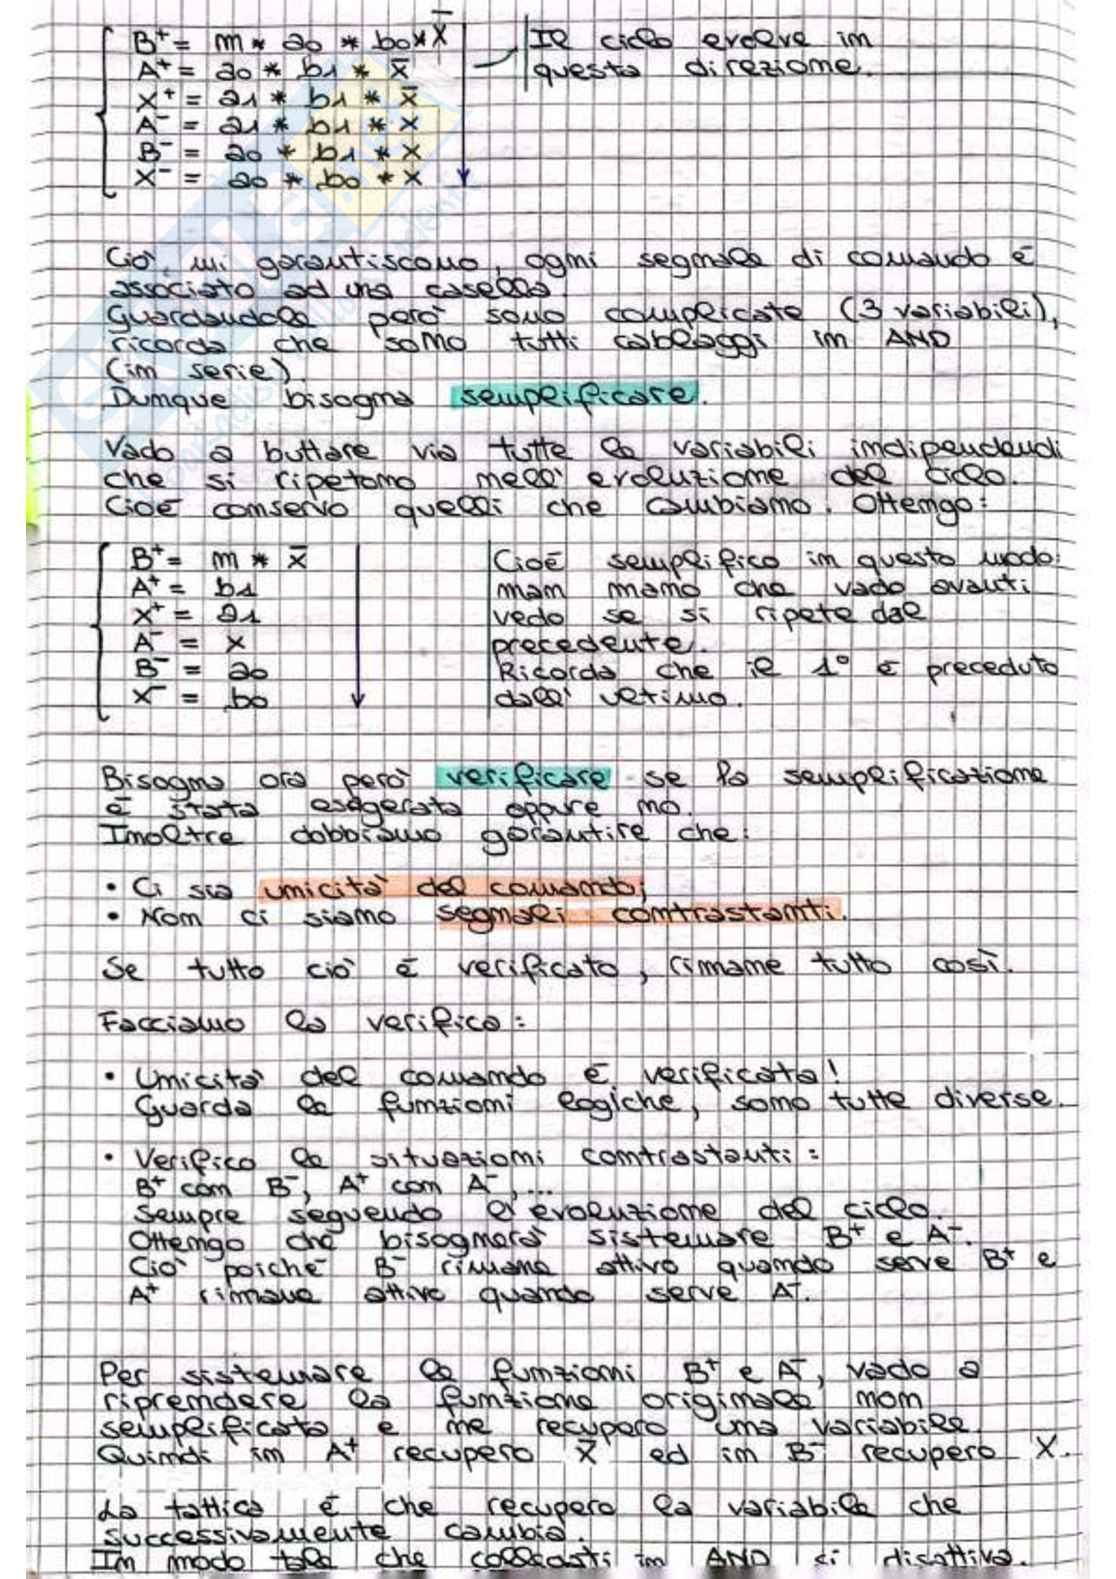 B⁺ = m * a0 * b0 * x̄
A⁺ = a0 * b1 * x̄
X⁺ = a1 * b1 * x̄
A⁻ = a1 * b1 * x
B⁻ = a0 * b1 * x
X⁻ = a0 * b0 * x
Il ciclo evolve in
questa direzione.
Ciò mi garantiscono, ogni segnale di comando è
associato ad una casella.
Guardandole però sono complicate (3 variabili),
ricorda che sono tutti cablaggi in AND
(in serie).
Dunque bisogna semplificare.
Vado a buttare via tutte le variabili indipendendi
che si ripetono nell'evoluzione del ciclo.
Cioè conservo quelli che cambiano. Ottengo:
B⁺ = m * x̄
A⁺ = b1
X⁺ = a1
A⁻ = x
B⁻ = a0
X⁻ = b0
Cioè semplifico in questo modo:
man mano che vado avanti
vedo se si ripete dal
precedente.
Ricorda che il 1° è preceduto
dall'ultimo.
Bisogna ora però verificare se la semplificazione
è stata esagerata oppure no.
Inoltre dobbiamo garantire che:
• Ci sia unicità del comando;
• Non ci siano segnali contrastanti.
Se tutto ciò è verificato, rimane tutto così.
Facciamo la verifica:
• Unicità del comando è verificata!
Guarda le funzioni logiche, sono tutte diverse.
• Verifico le situazioni contrastanti:
B⁺ con B⁻, A⁺ con A⁻,...
Sempre seguendo l'evoluzione del ciclo.
Ottengo che bisognerà sistemare B⁺ e A⁻.
Ciò poiché B⁻ rimane attivo quando serve B⁺ e
A⁺ rimane attivo quando serve A⁻.
Per sistemare le funzioni B⁺ e A⁻, vado a
riprendere la funzione originale non
semplificata e me recupero una variabile.
Quindi in A⁺ recupero x̄ ed in B⁻ recupero X.
La tattica è che recupero la variabile che
successivamente cambia.
In modo tale che collegasti in AND si disattiva.